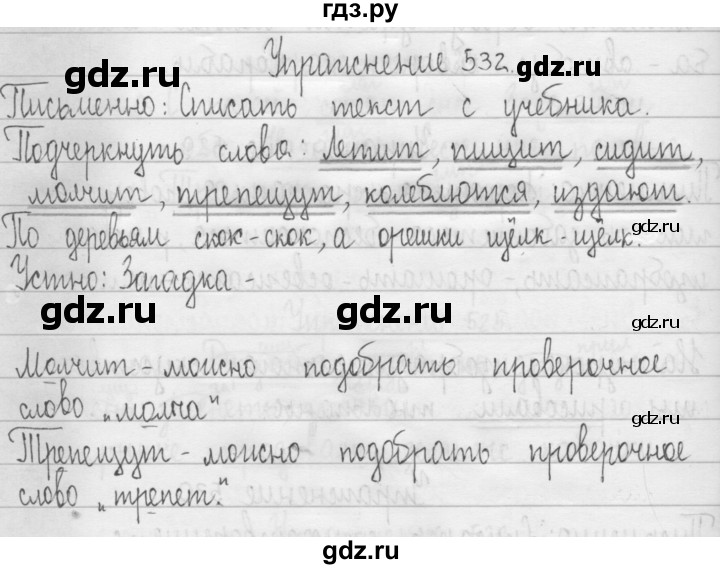 гдз.ру
Упражнение 532.
Письменно: Списать текст с учебника.
Подчеркнуть слова: Летит, пищит, сидит,
молчит, трепещут, колеблются, издают.
По деревьям скок-скок, а орешки щёлк-щёлк.
Устно: Загадка -
Молчит - можно подобрать проверочное
слово „молча“
Трепещут - можно подобрать проверочное
слово „трепет“.
gdz.ru
gdz.ru
gdz.ru
gdz.ru
gdz.ru
gdz.ru
gdz.ru
gdz.ru
gdz.ru
gdz.ru
gdz.ru